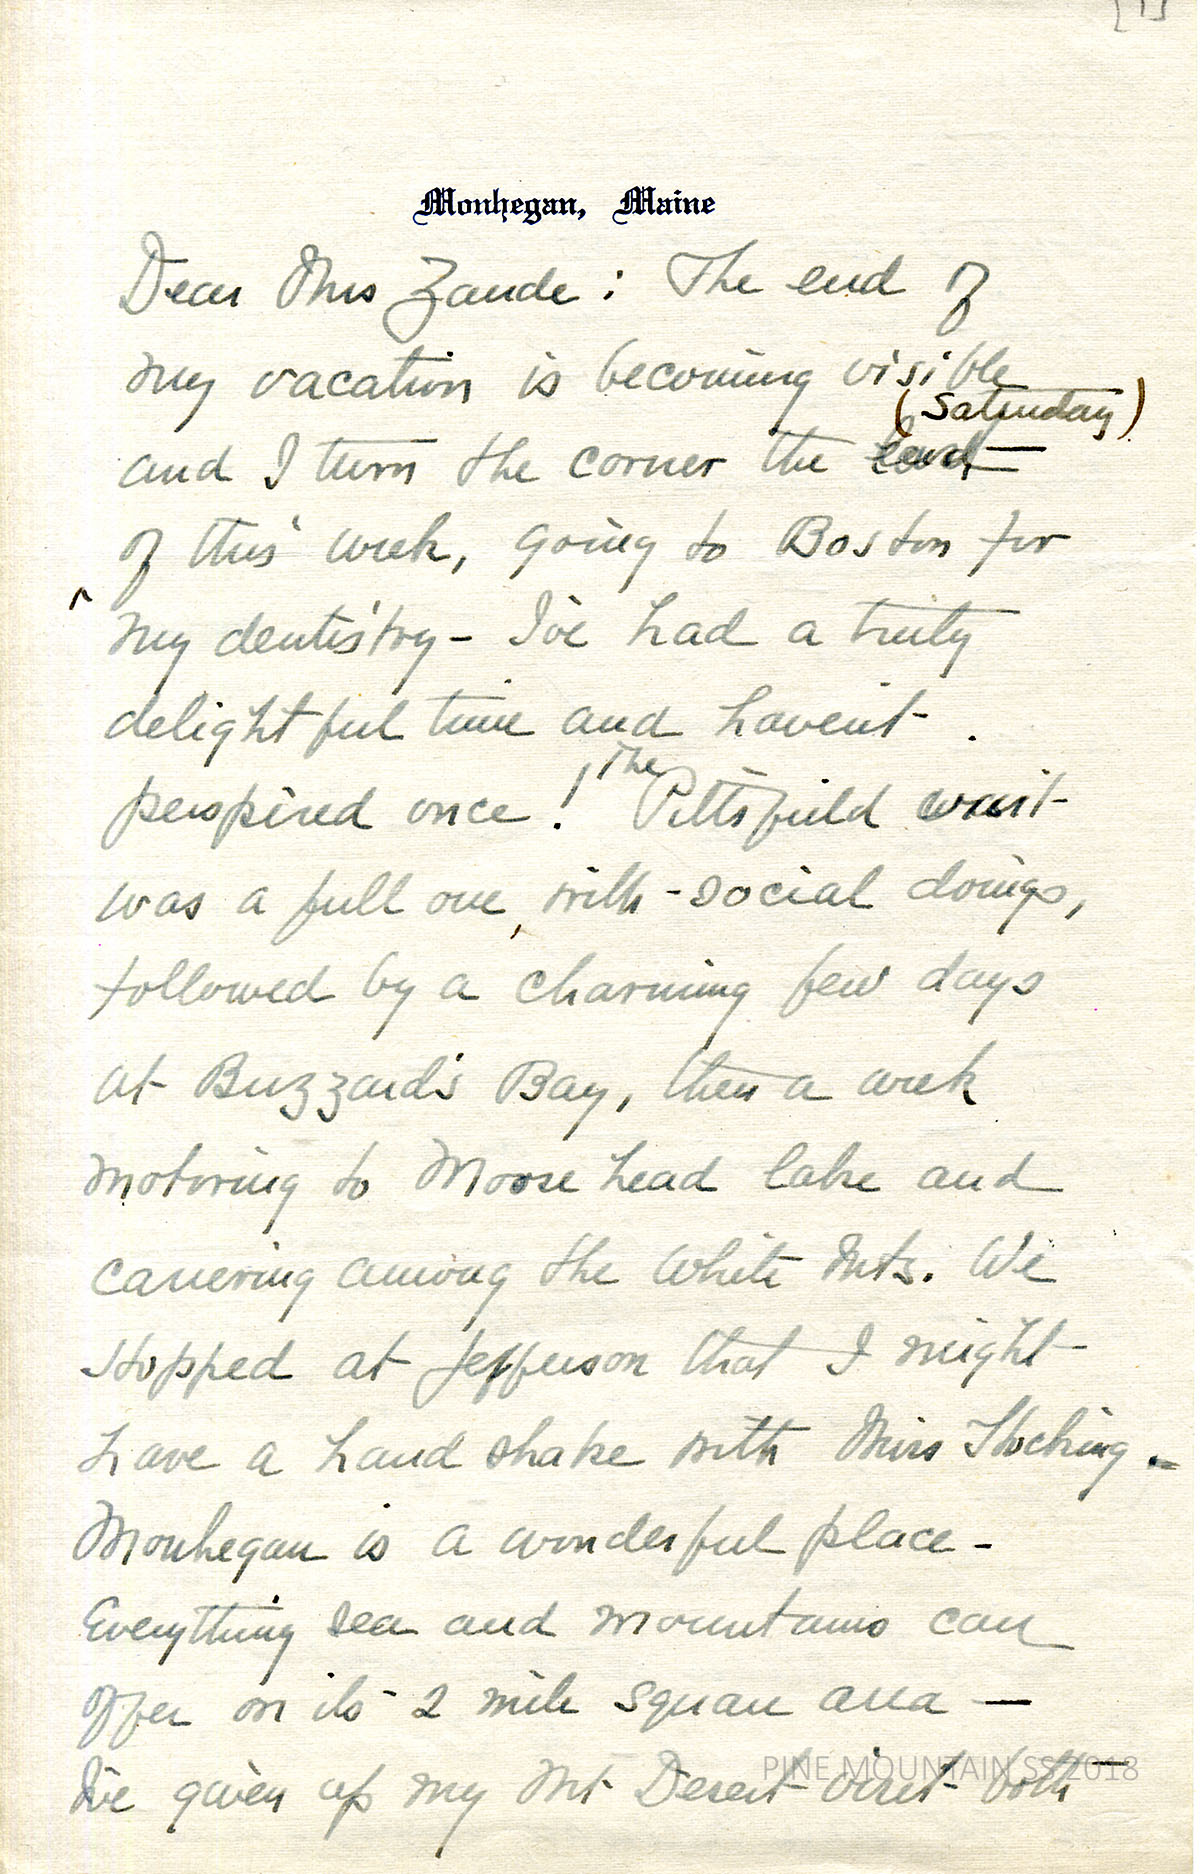 [1]
Monhegan, Maine
Dear Mrs Zande: The end of
my vacation is becoming visible
(Saturday)
and I turn the corner the end —
of this week, going to Boston for
my dentistry - I've had a truly
delightful time and havent
perspired once! The Pittsfield visit
was a full one, with social doings,
followed by a charming few days
at Buzzard's Bay, then a week
motoring to Moose head lake and
careering among the White Mts. We
stopped at Jefferson that I might
have a hand shake with Miss Hocking -
Monhegan is a wonderful place -
Everything sea and mountains can
offer on its 2 mile square area —
I've given up my Mt Desert visit both
PINE MOUNTAIN SS 2018